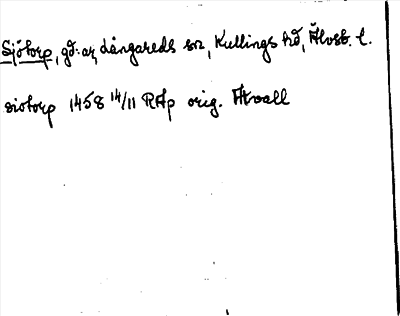 Sjötorp, gd:ar, Långareds sn, Kullings hd, Älvsb. l.
siotorp 1458 14/11 RAp orig. Ätvall